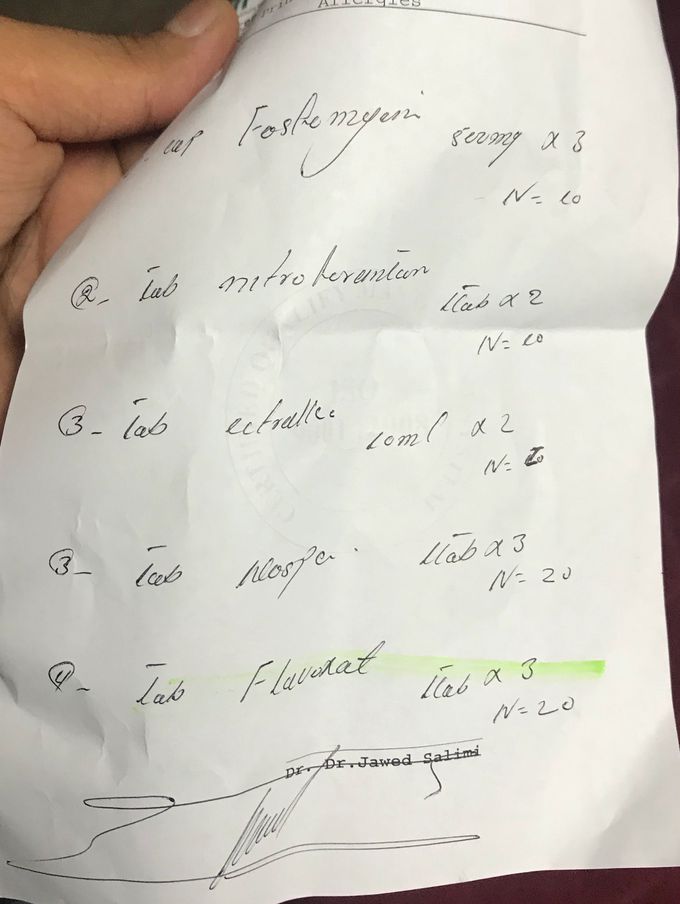 Allergies
cap Foskomycin 500mg x 3
N= 10
②- Tab nitroforantan 1Tab x 2
N= 10
③- Tab x 2
N=
③- Tab Nospa. 1Tab x 3
N= 20
④- Tab Flavoxat 1Tab x 3
N= 20
Dr. Dr.Jawed Salimi